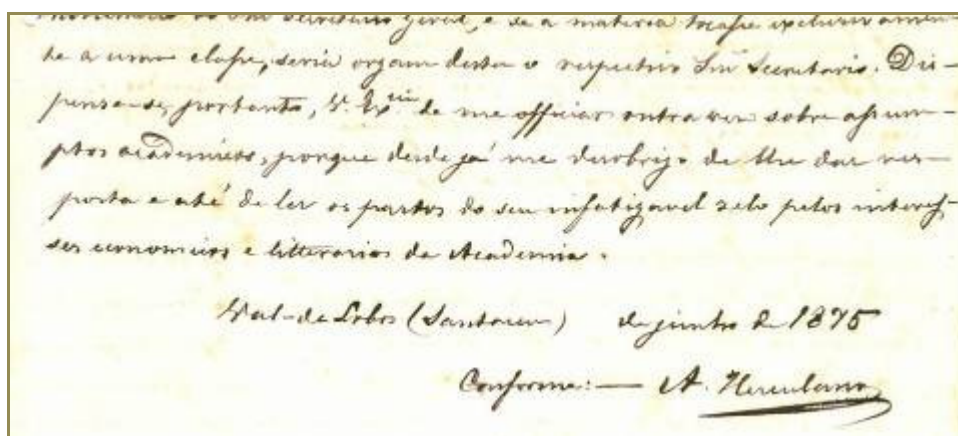 do Snr secretario geral, e se a materia tocasse exclusivamen-
te a uma classe, seria orgam desta o respectivo Snr Secretario. Dis-
pense-se, portanto, V. Exia. de me officiar outra vez sobre assum-
ptos acâdemicos, porque desde já me desobrigo de lhe dar res-
posta e até de ler os partos do seu infatigavel zelo pelos interes-
ses economicos e litterarios da Academia.
Val-de Lobos (Santarem) de junho de 1875
Conforme: — A. Herculano